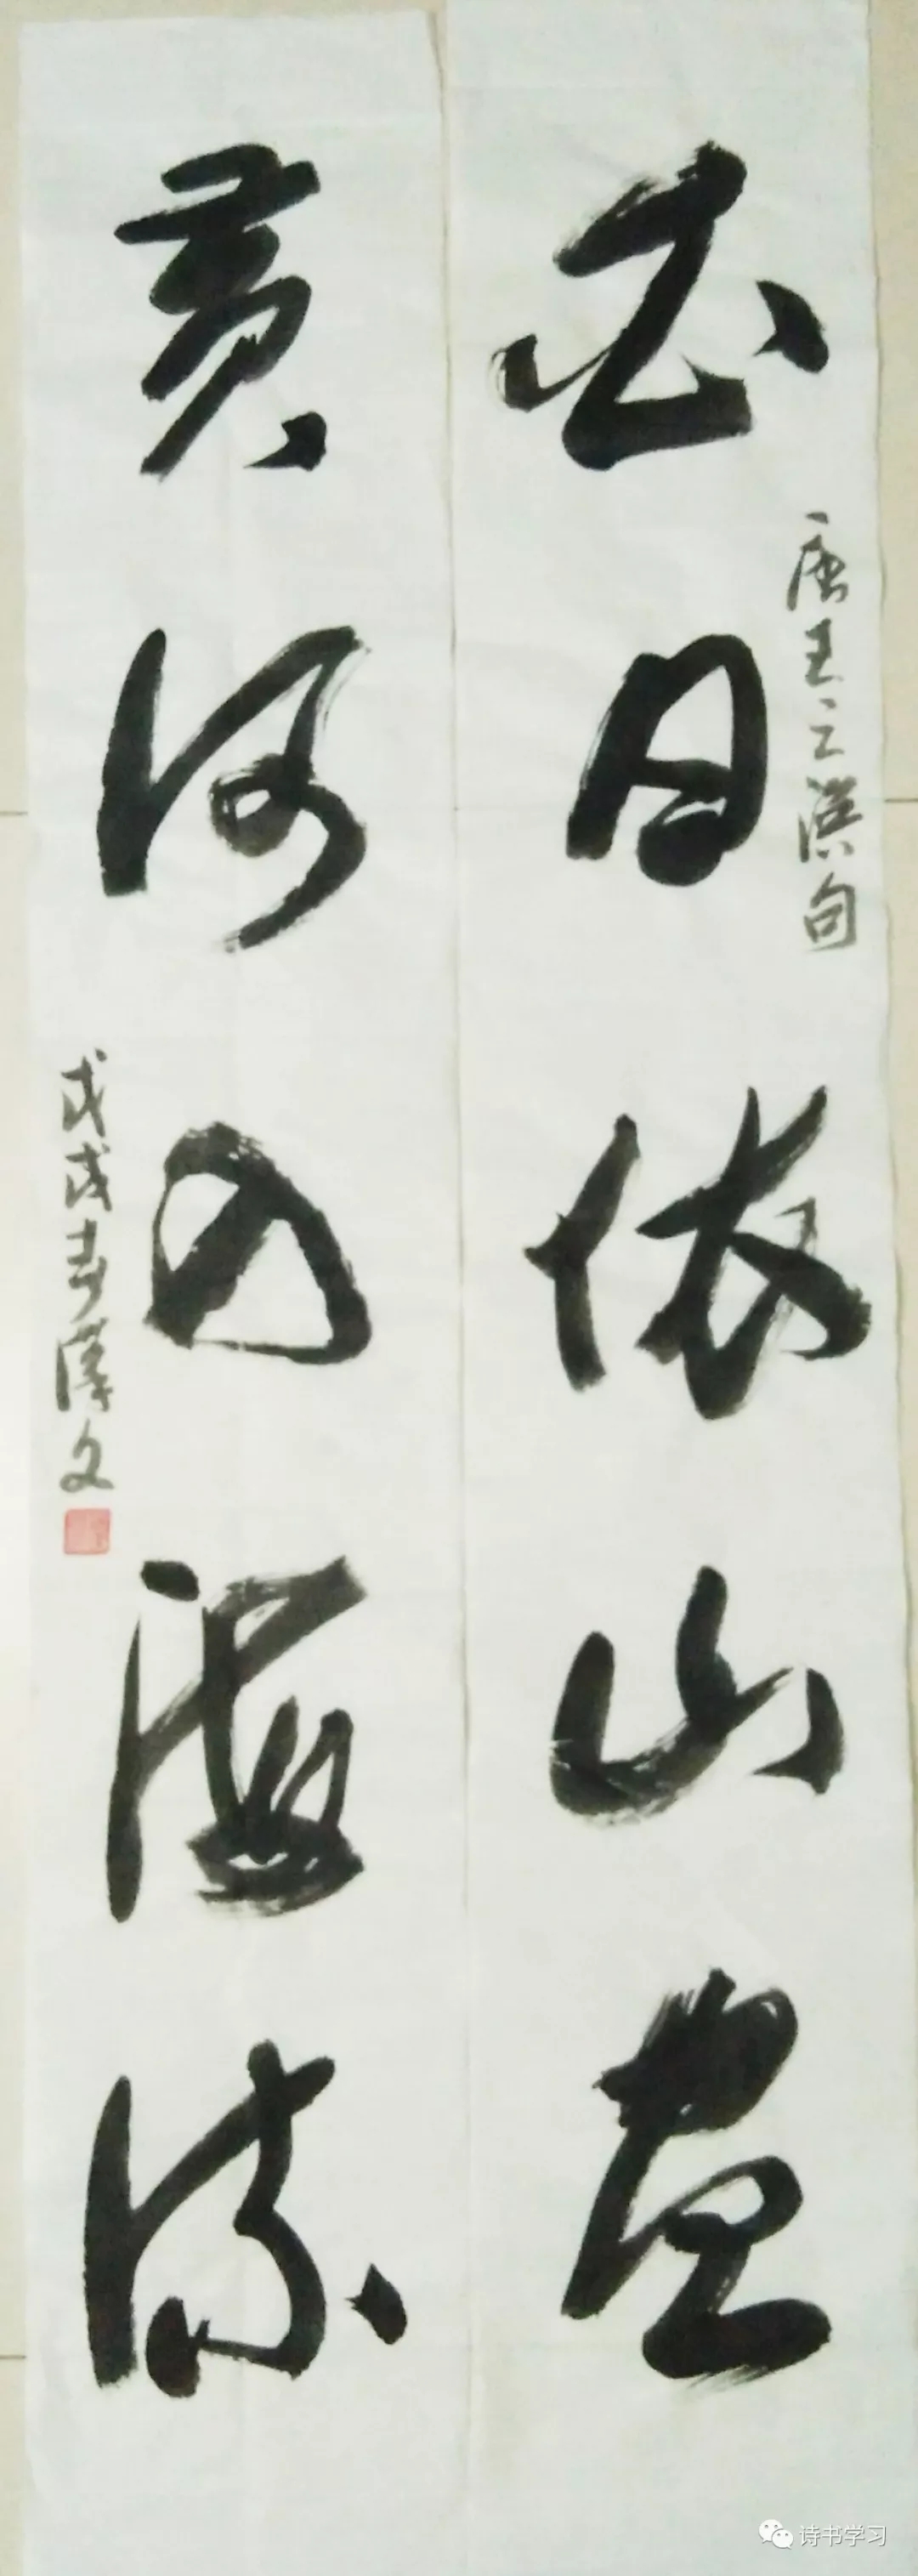 白日依山盡
唐王之渙句
黄河入海流
戊戌春漢文
诗书学习